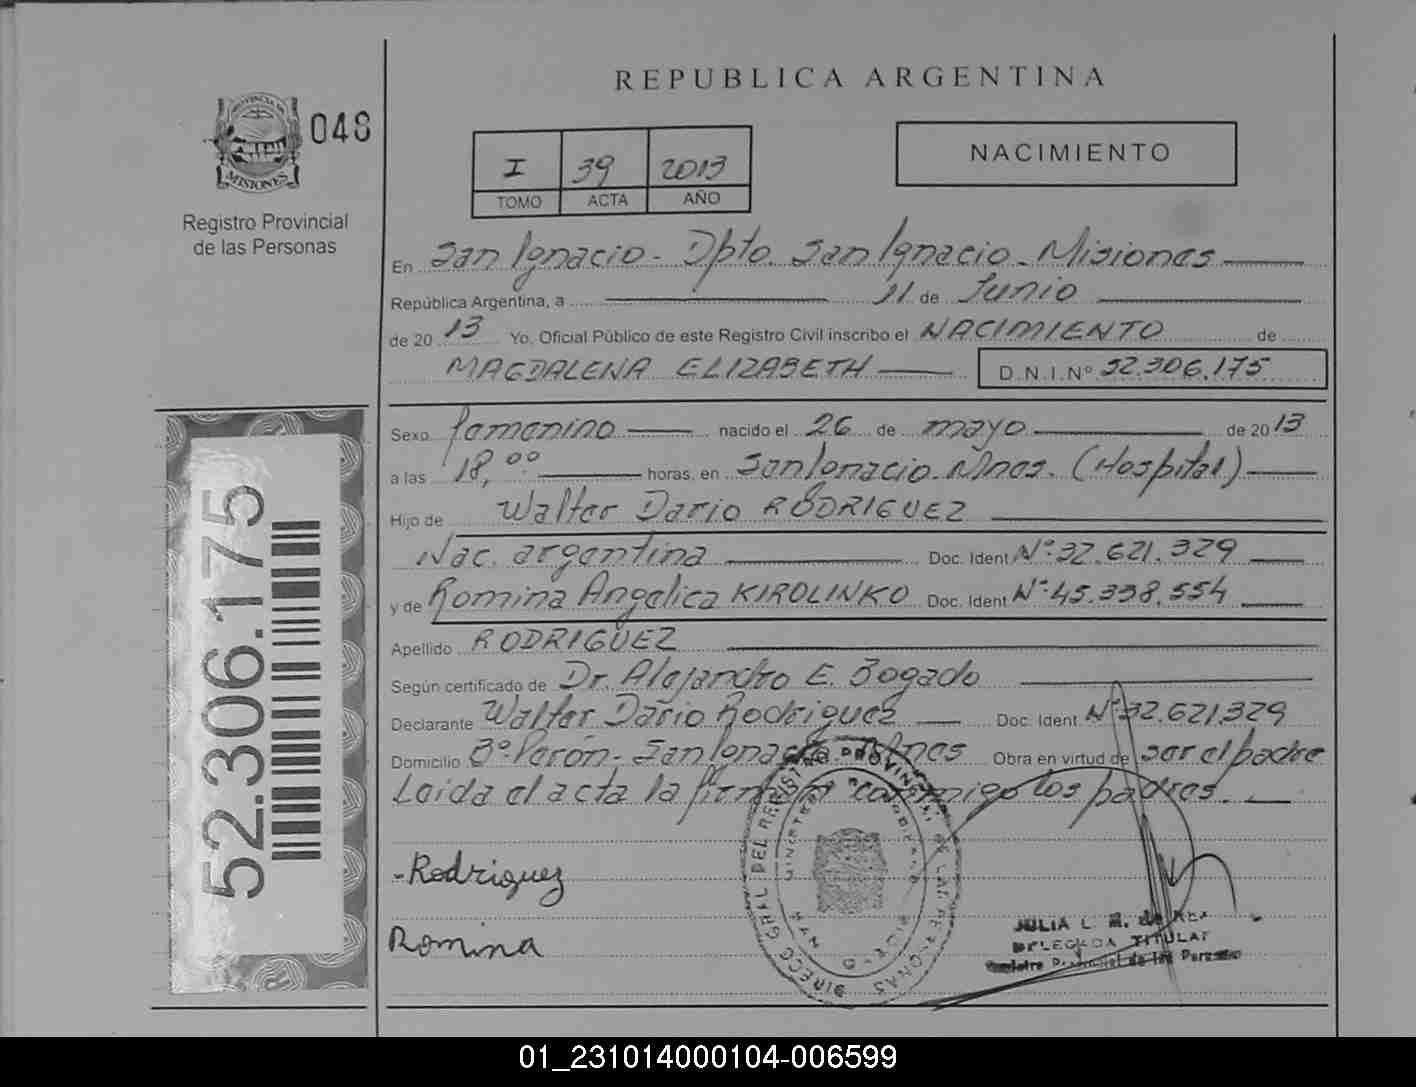 REPUBLICA ARGENTINA
048
MISIONES
Registro Provincial
de las Personas
I 39 2013
TOMO ACTA AÑO
NACIMIENTO
En San Ignacio - Dpto. San Ignacio - Misiones
República Argentina, a 11 de Junio
de 20 13 Yo, Oficial Público de este Registro Civil inscribo el NACIMIENTO de
MAGDALENA ELIZABETH D.N.I.Nº 52.306.175
Sexo femenino nacido el 26 de mayo de 20 13
a las 18,00 horas, en San Ignacio. Mnes. (Hospital)
Hijo de Walter Dario RODRIGUEZ
Nac. argentina Doc. Ident Nº 32.621.329
y de Romina Angelica KIROLINKO Doc. Ident Nº 45.338.554
Apellido RODRIGUEZ
Según certificado de Dr. Alejandro E. Bogado
Declarante Walter Dario Rodriguez Doc. Ident Nº 32.621.329
Domicilio Bº Perón - San Ignacio Mnes Obra en virtud de ser el padre
Leida el acta la firman conmigo los padres.
52.306.175
Rodriguez
Romina
JULIA L.
DELEGADA TITULAR
Registro Provincial de las Personas
01_231014000104-006599